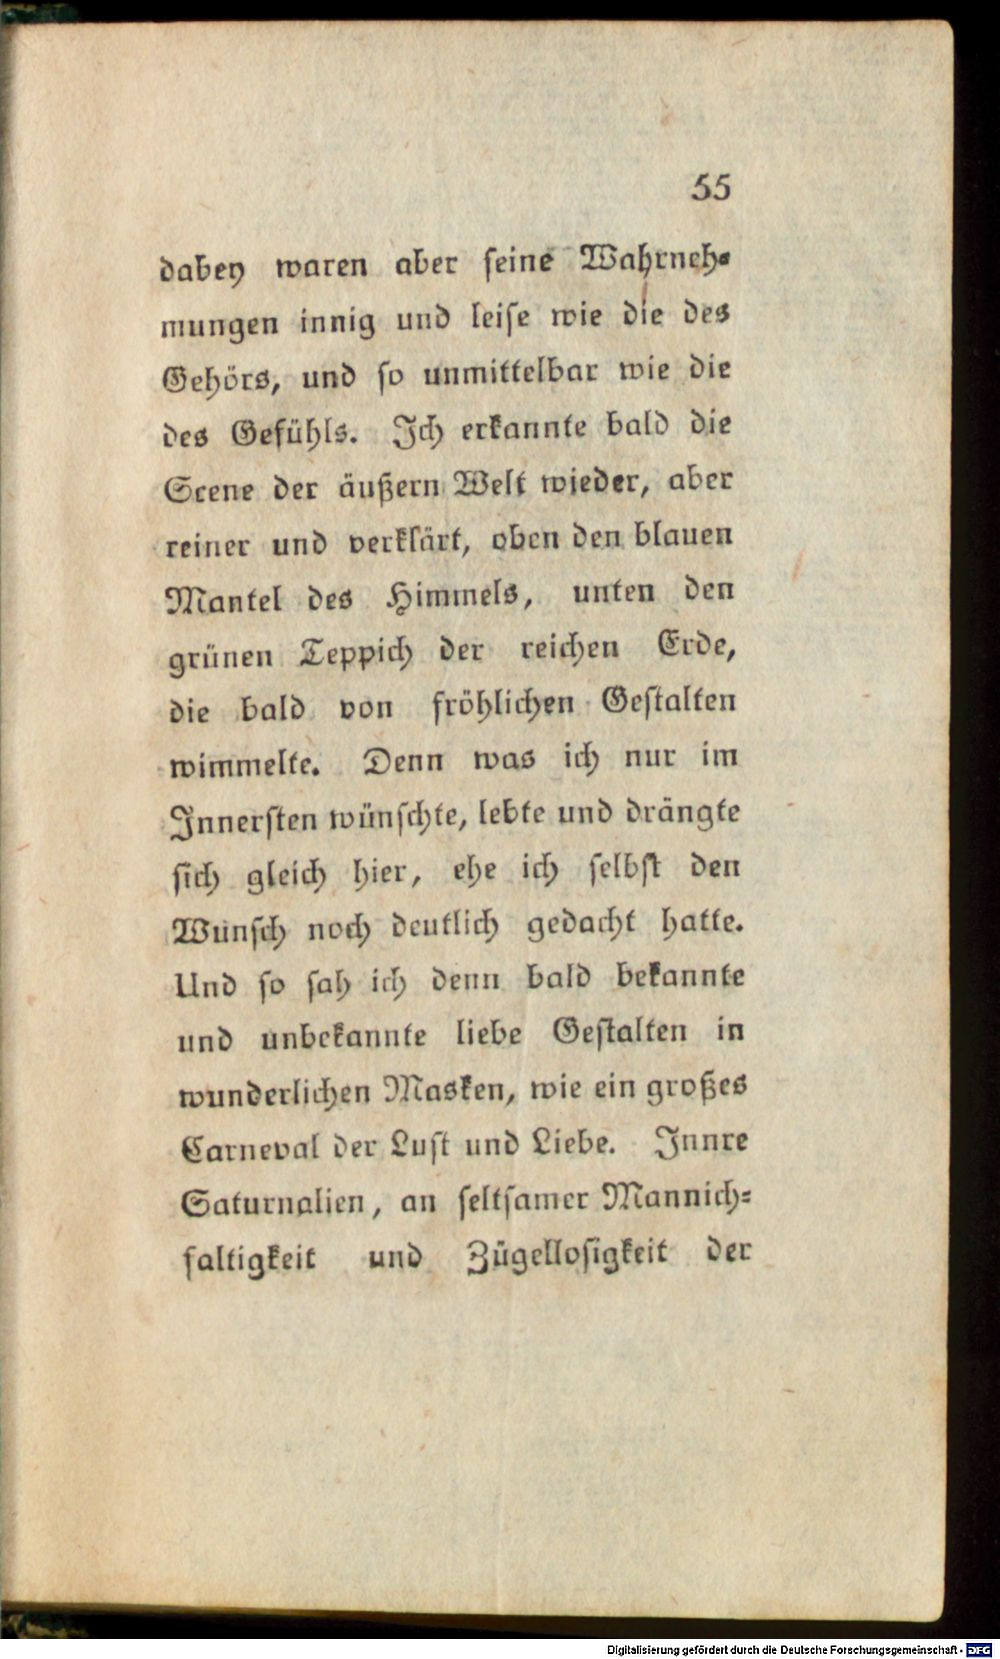 55
dabey waren aber seine Wahrneh-
mungen innig und leise wie die des
Gehörs, und so unmittelbar wie die
des Gefühls. Ich erkannte bald die
Scene der äußern Welt wieder, aber
reiner und verklärt, oben den blauen
Mantel des Himmels, unten den
grünen Teppich der reichen Erde,
die bald von fröhlichen Gestalten
wimmelte. Denn was ich nur im
Innersten wünschte, lebte und drängte
sich gleich hier, ehe ich selbst den
Wunsch noch deutlich gedacht hatte.
Und so sah ich denn bald bekannte
und unbekannte liebe Gestalten in
wunderlichen Masken, wie ein großes
Carneval der Lust und Liebe. Innre
Saturnalien, an seltsamer Mannich-
faltigkeit und Zügellosigkeit der
Digitalisierung gefördert durch die Deutsche Forschungsgemeinschaft - DFG